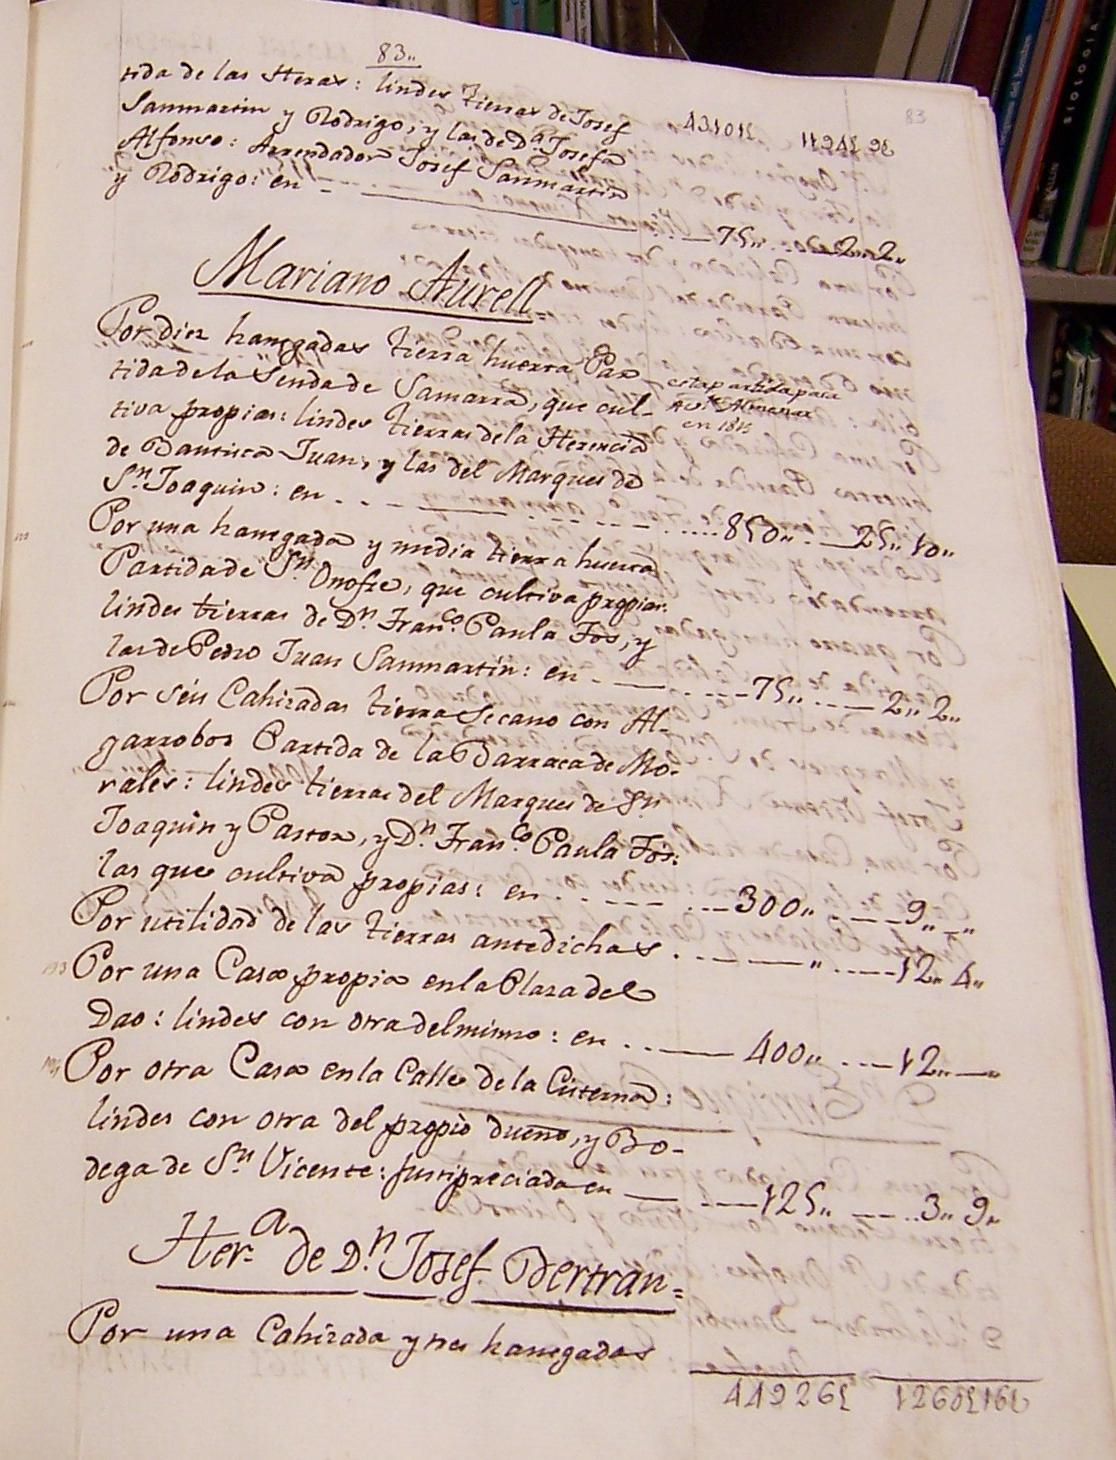 83..
tida de las Heras: lindes tierras de Josef
Sanmartin y Rodrigo, y las de Da. Josefa
Alfonso: Arrendador Josef Sanmartin
y Rodrigo: en 75,, 2,, 2,,
83
Mariano Aurell
Por diez hanegadas tierra huerta Par-
tida de la Senda de Samarra, que cul-
tiva propias: lindes tierras de la Herencia
de Bautista Juan, y las del Marques de
Sn. Joaquin: en 850,, 25,, 10,,
esta partida pasa
a Vte. Almenar
en 1815
Por una hanegada y media tierra huerta
Partida de Sn. Onofre, que cultiva propias:
lindes tierras de Dn. Franco. Paula Fos, y
las de Pedro Juan Sanmartin: en 75,, 2,, 2,,
Por seis Cahizadas tierra Secano con Al-
garrobos Partida de la Barraca de Mo-
rales: lindes tierras del Marques de Sn.
Joaquin y Pastor, y Dn. Franco. Paula Fos:
las que cultiva propias: en 300,, 9,, ,,
Por utilidad de las tierras antedichas ,, 12,, 4,,
Por una Casa propia en la Plaza del
Dao: lindes con otra del mismo: en 400,, 12,,
Por otra Casa en la Calle de la Cisterna:
lindes con otra del propio dueño, y Bo-
dega de Sn. Vicente: justipreciada en 125,, 3,, 9,,
Hera. de Dn. Josef Bertran=
Por una Cahizada y tres hanegadas